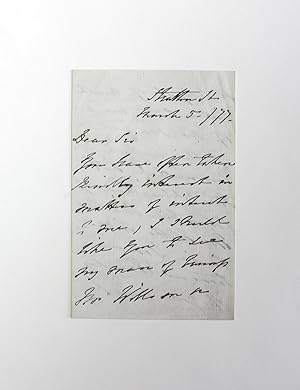 Stratton St
March 5 - /77
Dear Sir
You have often taken
kindly interest in
matters of interest
to me, I should
like you to see
my man of